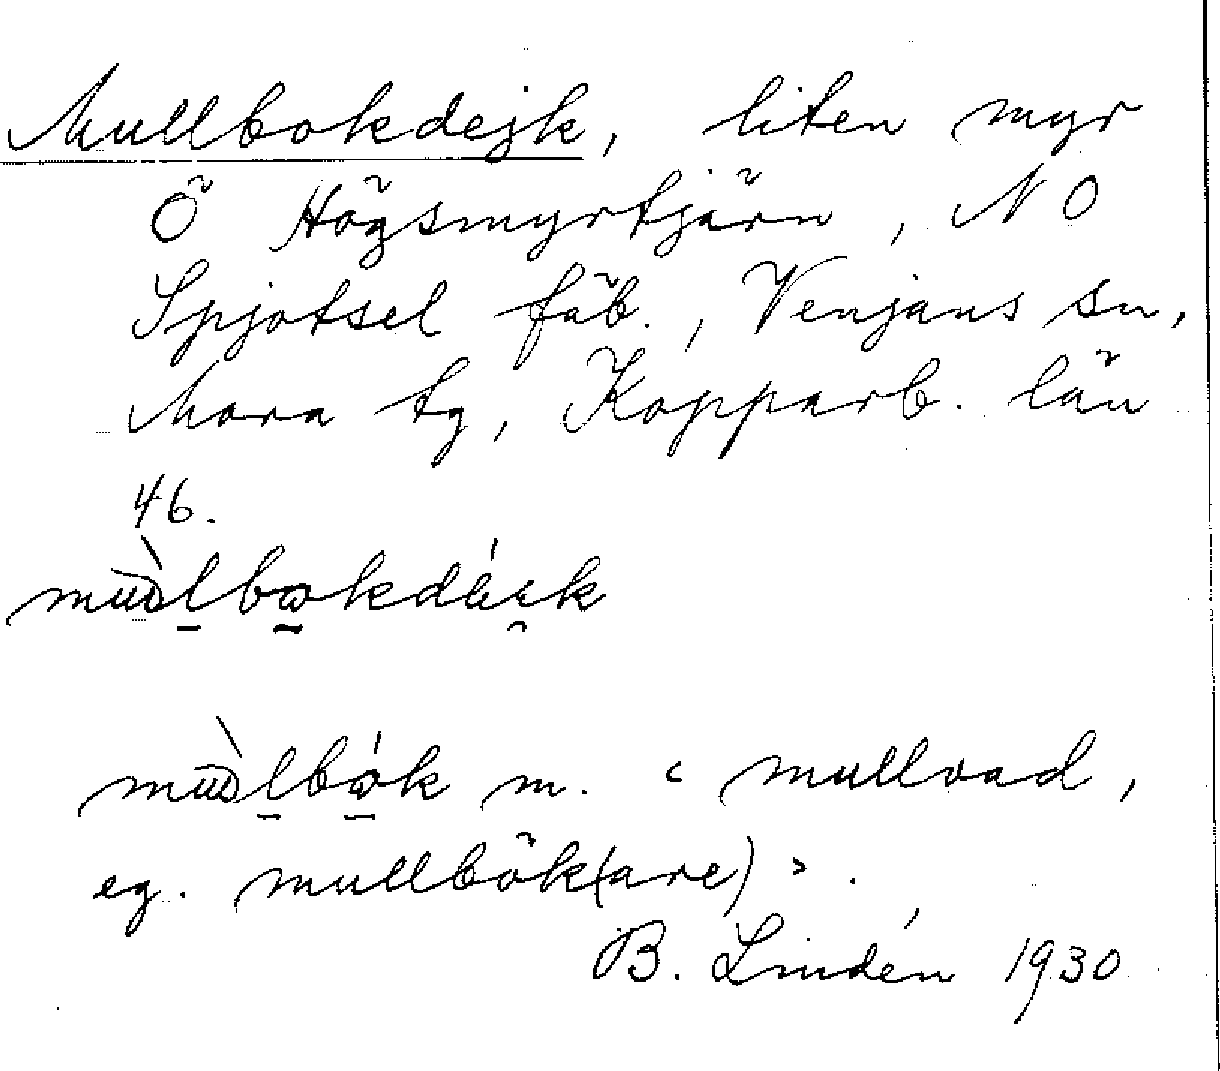 Mullbokdejk, liten myr
Ö Högsmyrtjärn, NO
Spjotsel fäb., Venjans sn,
Mora tg, Kopparb. län
46.
m. < mullvad,
eg. mullbök(are) > .
B. Lindén 1930